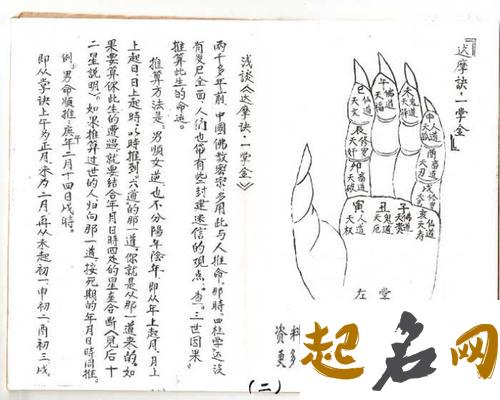 『达摩诀·一掌金』
巳 仙道 天文
午 佛道 天福
未 鬼道 天驿
申 人道
辰 修罗 天奸
酉 畜道 天刃
卯 畜道 天破
戌 修
寅 人道 天权
丑 鬼道 天厄
子 佛道 天贵
亥 仙道 天寿
左掌
浅谈《达摩诀·一掌金》
两千多年前,中國佛教密宗多用此与人推命。那時四柱学还没
有发巳全面,人们也带有些封建迷信的观点。查"三世因果"
推算此生的命运。
推算方法是:男順女逆也不分陽年陰年,即从年上起月,月上
上起日,日上起時,以時推到"六道"的那一道,你就是从那一道来的。如
果要算你此生的遭遇就要结合年月日時四处的星座合断(见后十
二星説明)。如果推算过世的人归向那一道,按死期的年月日時同推。
例:男命順推:庚午年二月十四日戌時。
即从掌訣上午为正月,未为二月,再从未起初一,申初二,酉初三,戌
(二)
资料
更多
起名网